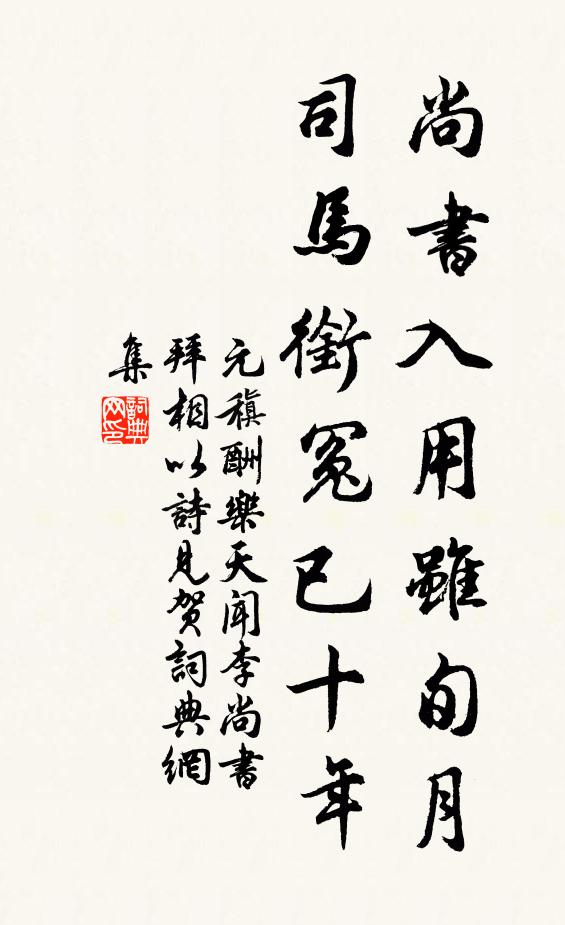 尚書入用雖旬月
司馬銜冤已十年
元稹酬樂天聞李尚書
拜相以詩見賀詞典網
集
詞典
网印